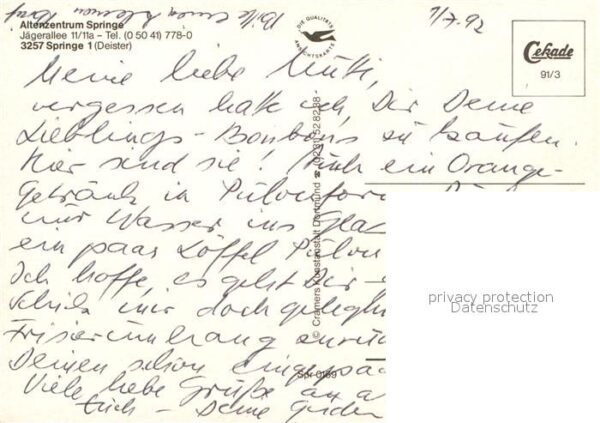 Altenzentrum Springe
Jägerallee 11/11a – Tel. (0 50 41) 778-0
3257 Springe 1 (Deister)
Bitte einen kleinen
DIE QUALITÄTS
ANSICHTSKARTE
7/7.92
Cekade
91/3
Meine liebe Mutti,
vergessen hatte ich, Dir Deine
Lieblings-Bonbons zu kaufen.
Hier sind sie! Auch ein Orange-
getränk in Pulverfor
nur Wasser ins Glas
ein paar Löffel Pulver
Ich hoffe, es geht Dir
Schick mir doch gelegtl
Frisierumhang zurück
Deinen schon eingepac
Viele liebe Grüße an a
Euch – Deine
© Cramers Kunstanstalt Dortmund ☎ (0231) 528238 -
Spr 0189
privacy protection
Datenschutz